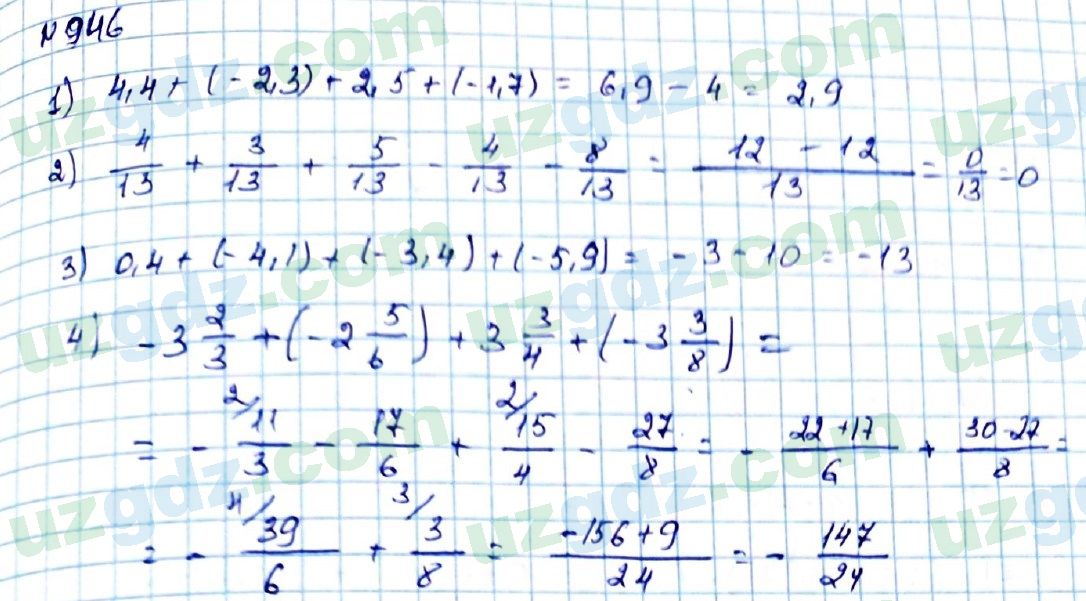 №946
1) 4,4 + (-2,3) + 2,5 + (-1,7) = 6,9 - 4 = 2,9
2) 4/13 + 3/13 + 5/13 - 4/13 - 8/13 = 12 - 12/13 = 0/13 = 0
3) 0,4 + (-4,1) + (-3,4) + (-5,9) = -3 - 10 = -13
4) -3 2/3 + (-2 5/6) + 3 3/4 + (-3 3/8) =
= - 2/ 11/3 - 17/6 + 2/ 15/4 - 27/8 = - 22+17/6 + 30-27/8 =
= - 4/ 39/6 + 3/ 3/8 = -156+9/24 = - 147/24
uzgdz.com
uzgdz.com
uzgdz.com
uzgdz.com
uzgdz.com
uzgdz.com
uzgdz.com
uzgdz.com
uzgdz.com